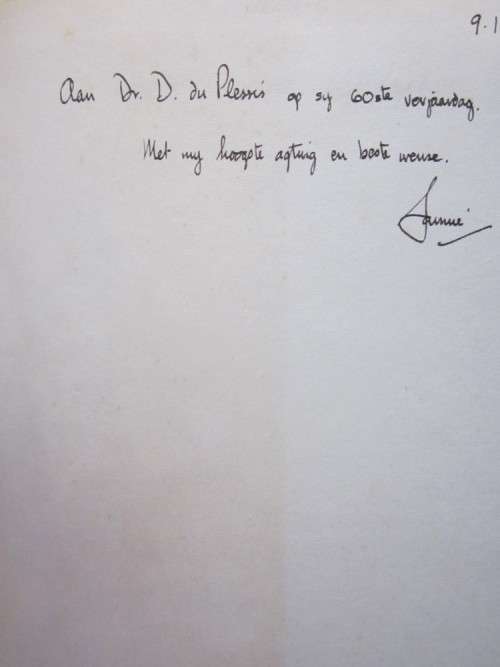 9.1
Aan Dr. D. du Plessis op sy 60ste verjaardag.
Met my hoogste agting en beste wense.